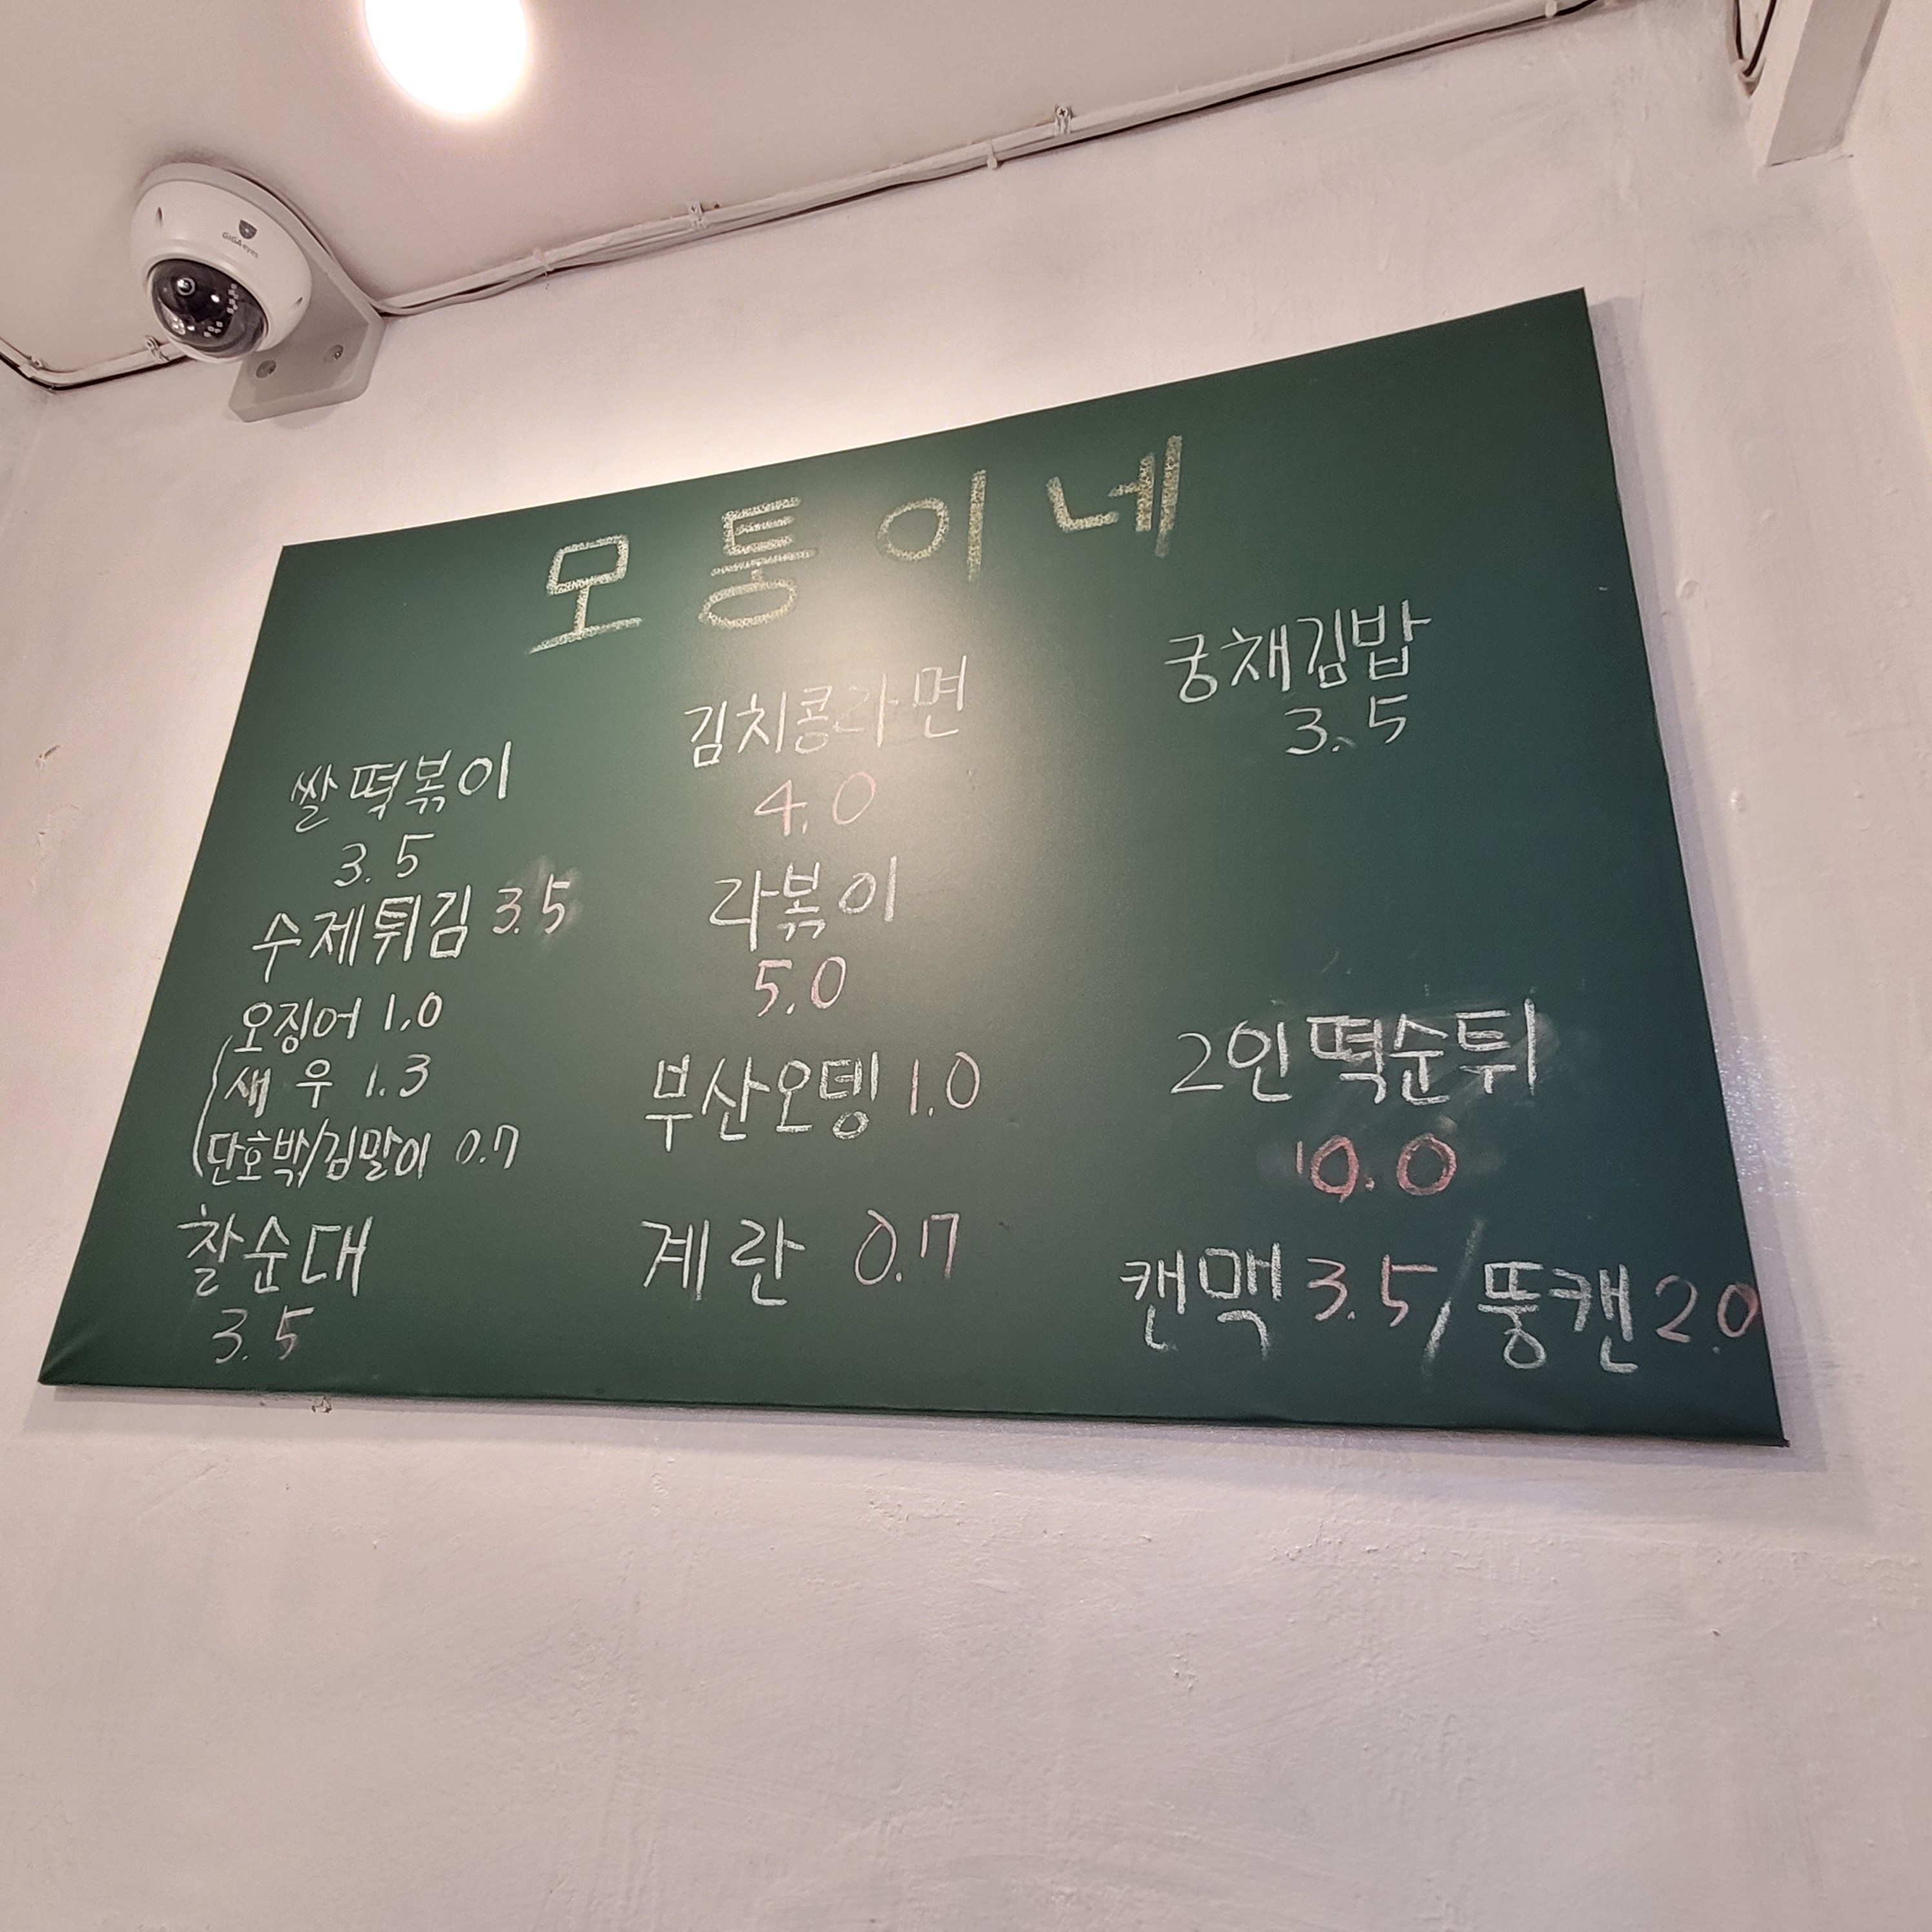 GiGAeyes
모퉁이네
쌀떡볶이
3.5
수제튀김 3.5
오징어 1.0
새우 1.3
단호박/김말이 0.7
찰순대
3.5
김치콩라면
4.0
라볶이
5.0
부산오뎅 1.0
계란 0.7
궁채김밥
3.5
2인떡순튀
10.0
캔맥 3.5/뚱캔 2.0